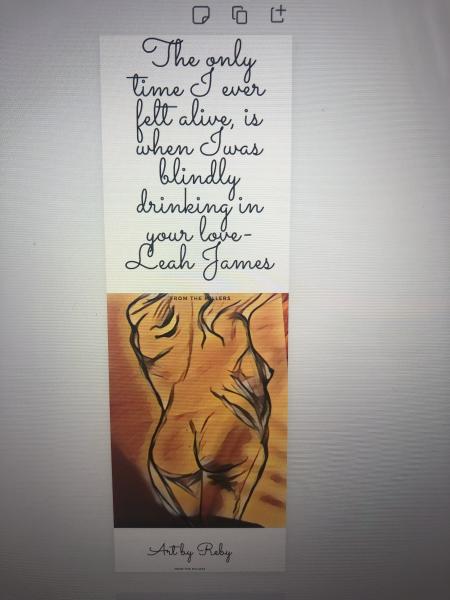 The only
time I ever
felt alive, is
when I was
blindly
drinking in
your love-
Leah James
FROM THE KILLERS
Art by Reby